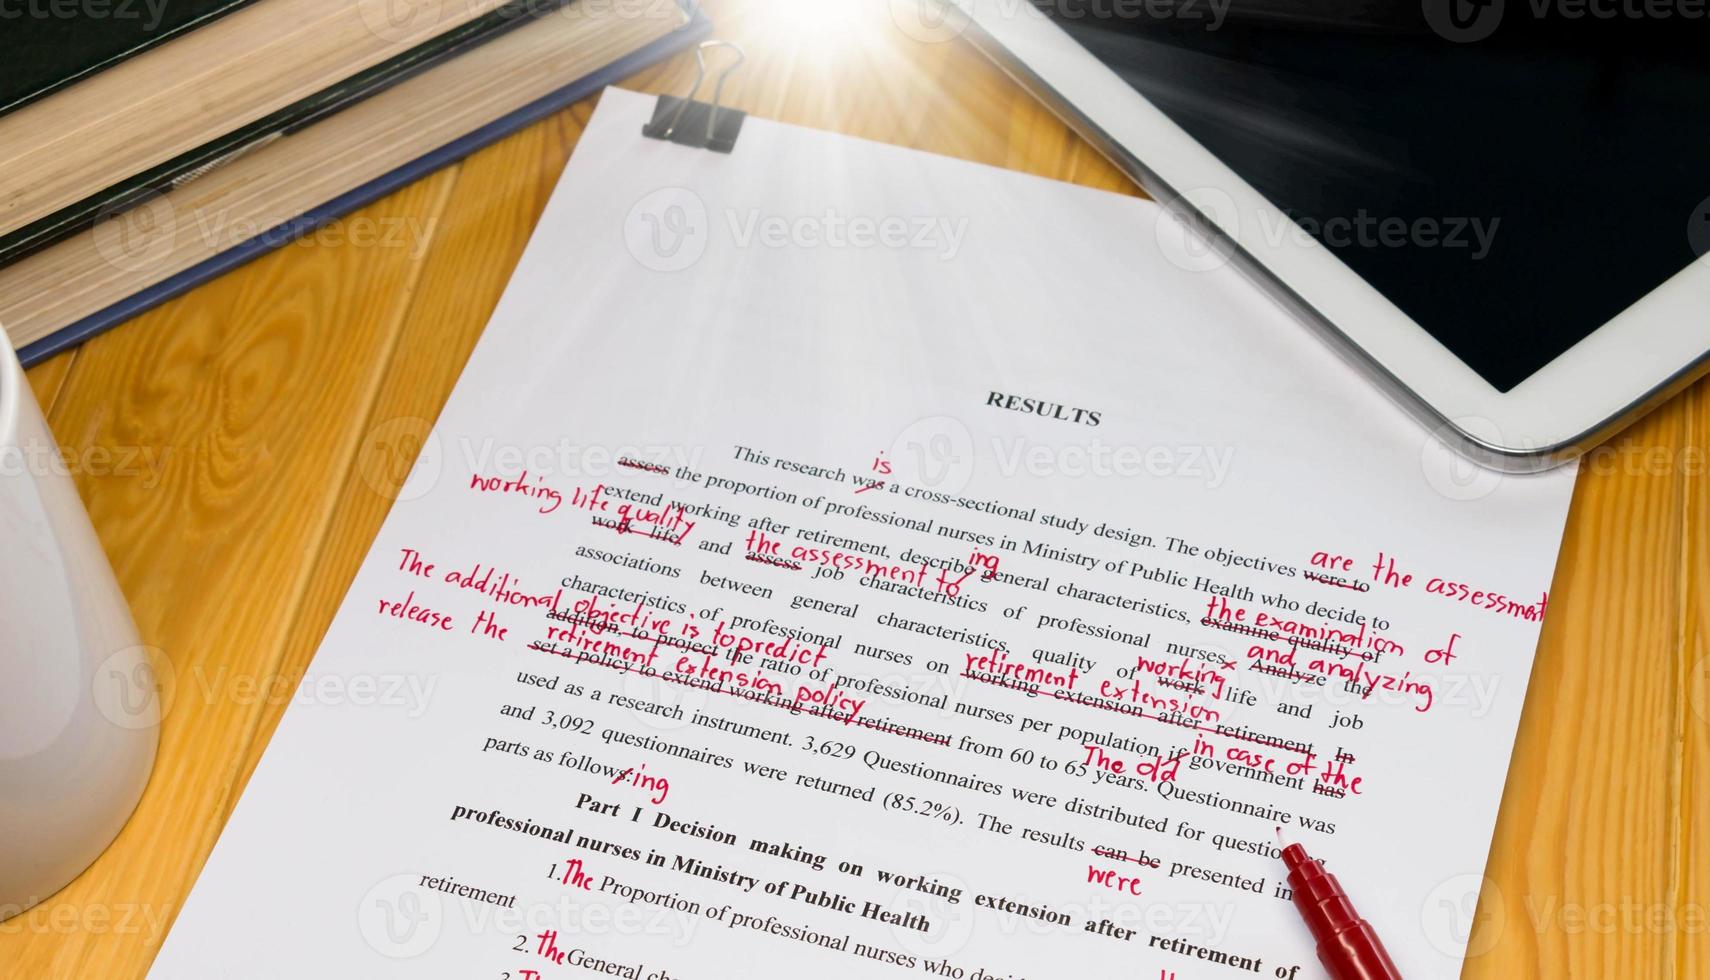 RESULTS
is
This research was a cross-sectional study design. The objectives were to
are the assessment
assess the proportion of professional nurses in Ministry of Public Health who decide to
working life quality
ing
extend working after retirement, describe general characteristics, examine quality of
the examination of
work life, and assess job characteristics of professional nurses. Analyze the
the assessment to
and analyzing
associations between general characteristics, quality of work life and job
working
The additional objective is to predict
characteristics of professional nurses on working extension after retirement. In
retirement extension
addition, to project the ratio of professional nurses per population if government has
in case of the
release the retirement extension policy
set a policy to extend working after retirement from 60 to 65 years. Questionnaire was
The old
used as a research instrument. 3,629 Questionnaires were distributed for
and 3,092 questionnaires were returned (85.2%). The results can be presented in
were
parts as follows:
ing
Part I Decision making on working extension after retirement of
professional nurses in Ministry of Public Health
1. The Proportion of professional nurses who
retirement
2. the General
3. The
Vecteezy
Vecteezy
Vecteezy
Vecteezy
Vecteezy
Vecteezy
Vecteezy
Vecteezy
Vecteezy
Vecteezy
Vecteezy
Vecteezy